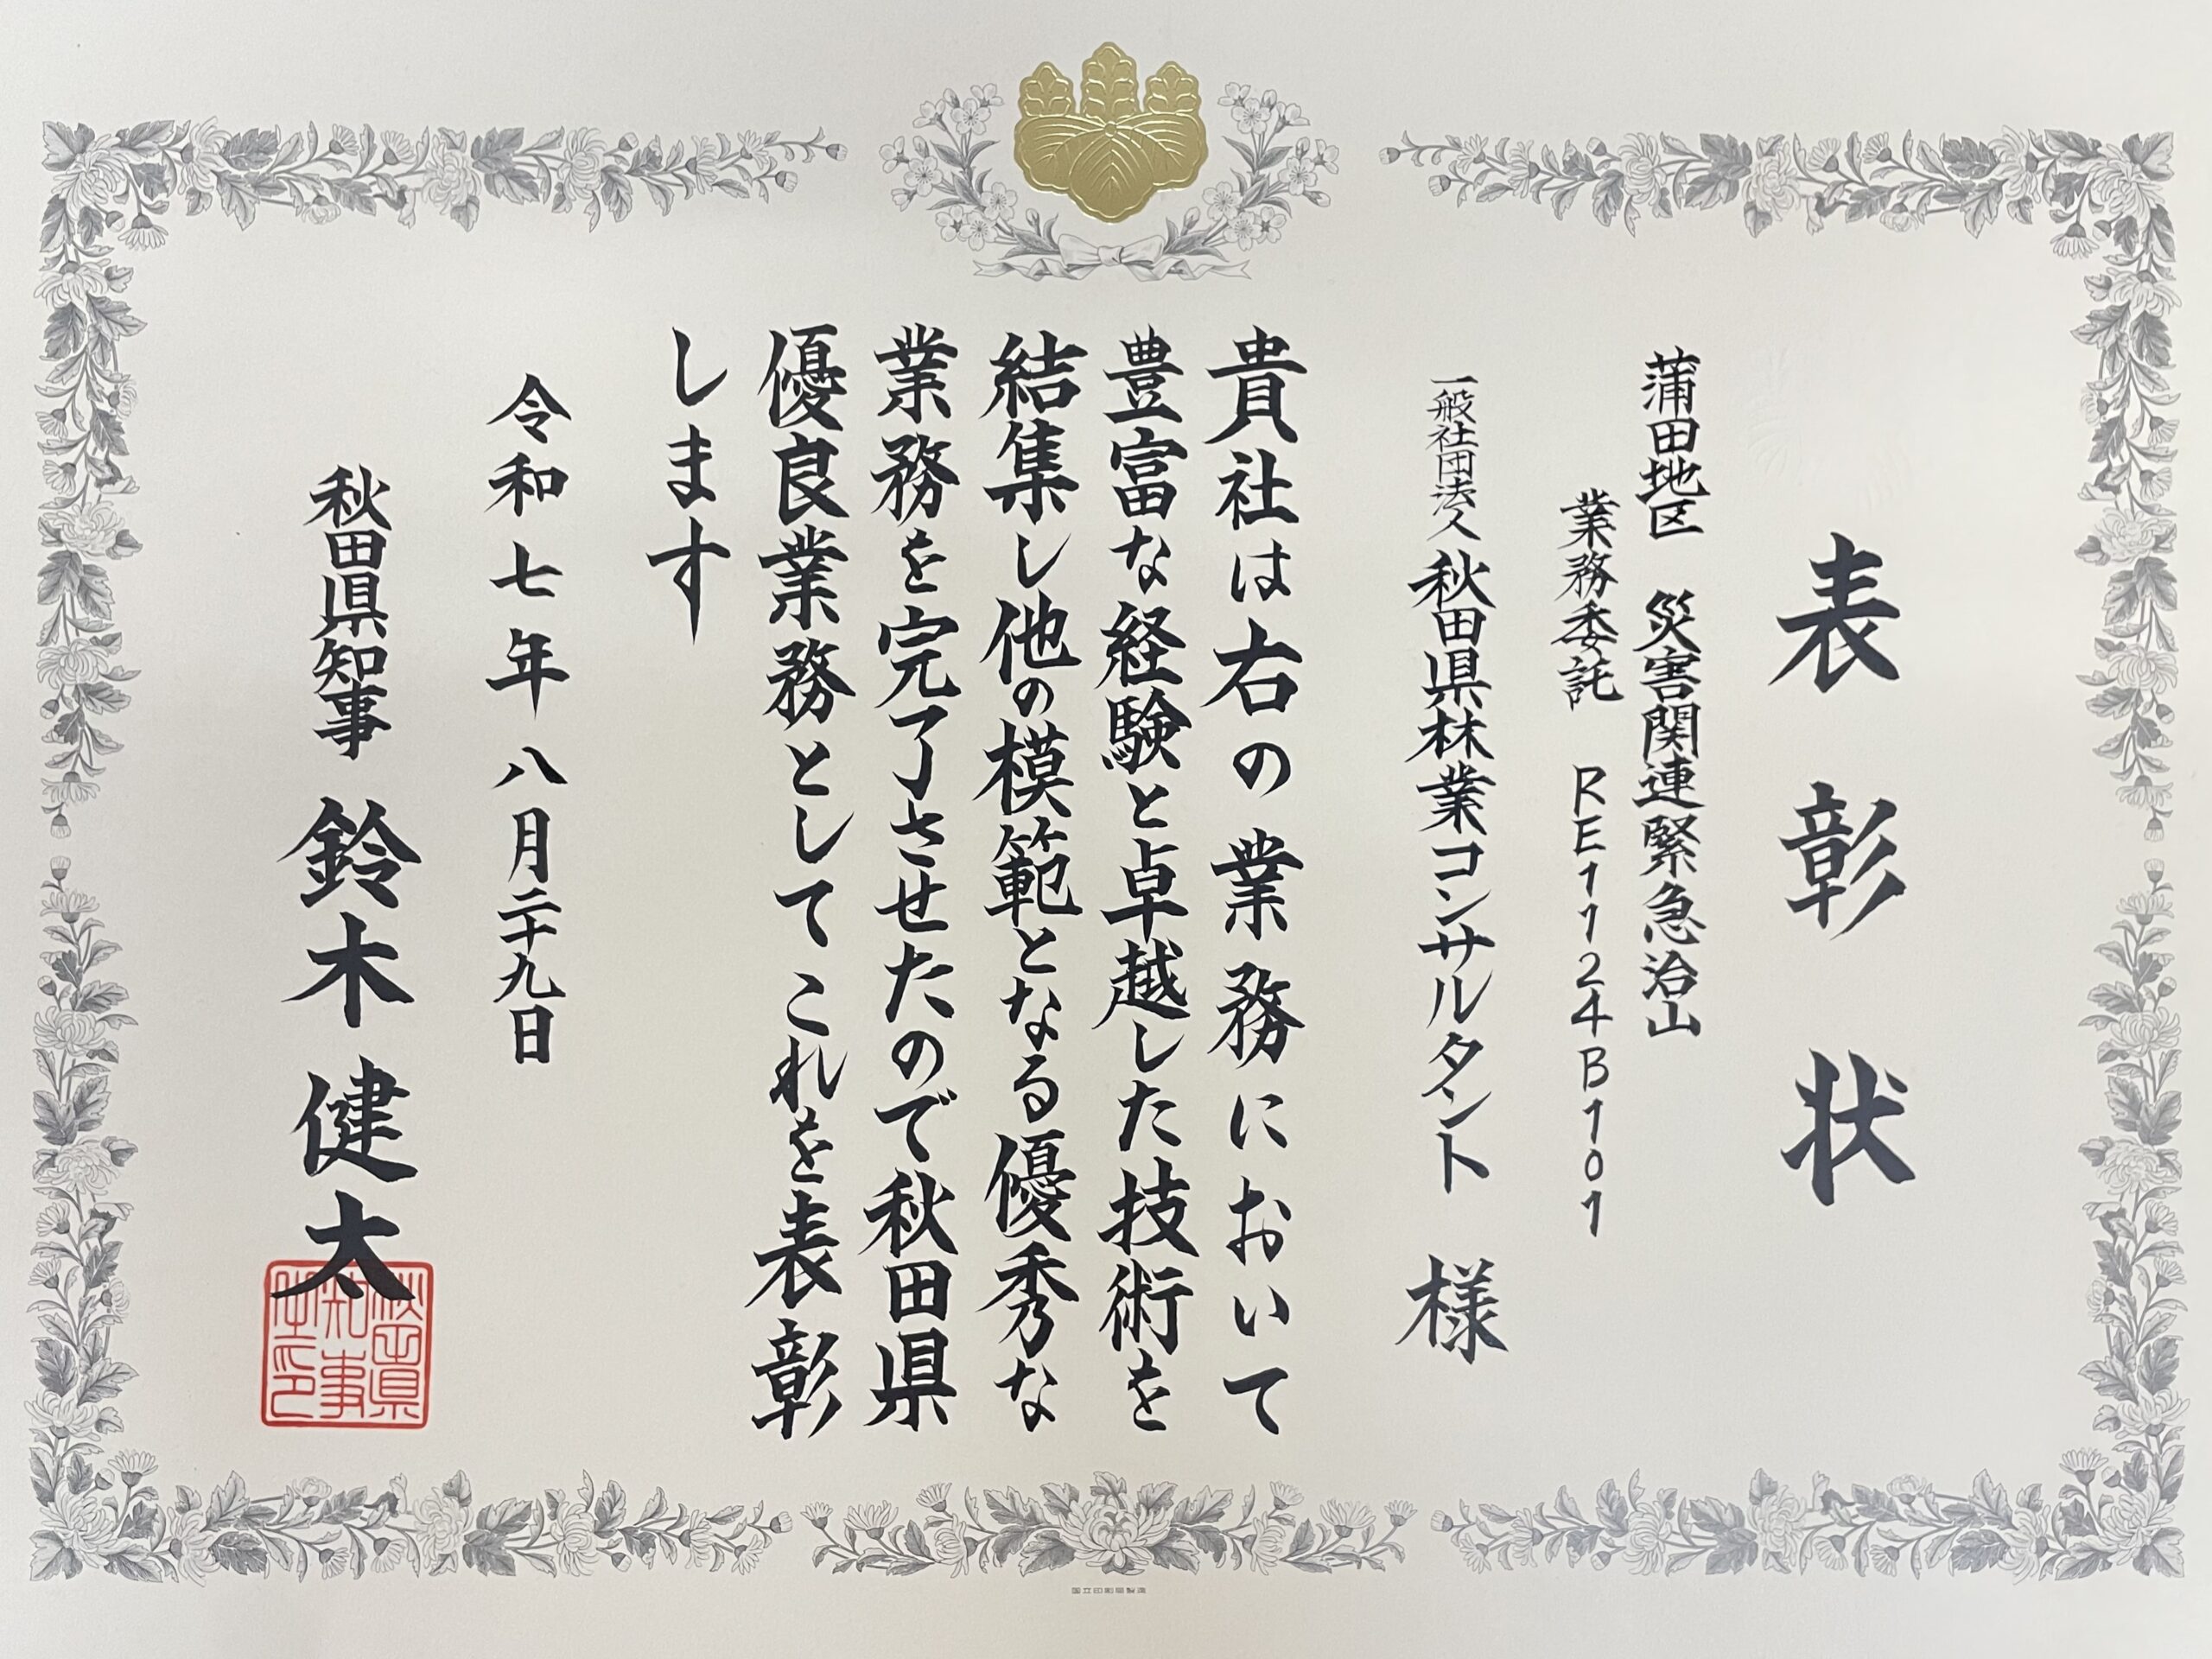 表彰状
蒲田地区　災害関連緊急治山
業務委託　RE1124B101
一般社団法人 秋田県林業コンサルタント　様
貴社は右の業務において
豊富な経験と卓越した技術を
結集し他の模範となる優秀な
業務を完了させたので秋田県
優良業務としてこれを表彰
します
令和七年八月二十九日
秋田県知事　鈴木健太
秋田県
知事
之印
国立印刷局製造